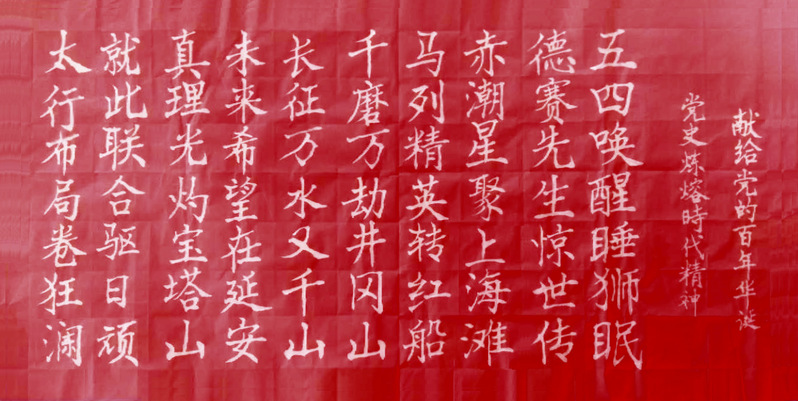 献给党的百年华诞
党史炼熔時代精神
五四唤醒睡狮眠
德赛先生惊世传
赤潮星聚上海滩
马列精英转红船
千磨万劫井冈山
长征万水又千山
未来希望在延安
真理光灼宝塔山
就此联合驱日顽
太行布局卷狂澜